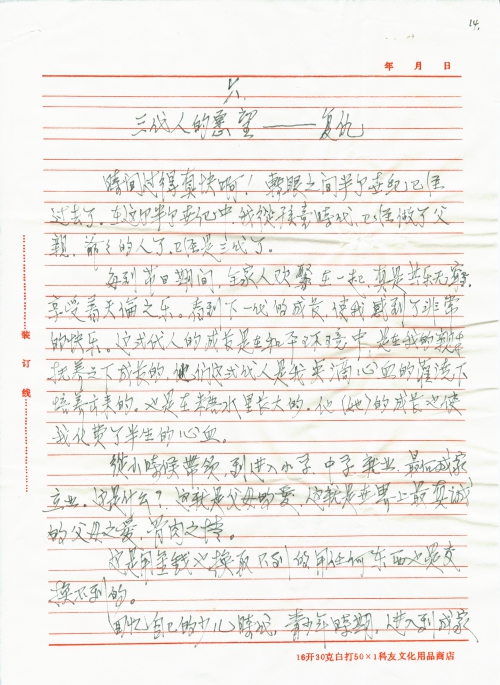 14.
年 月 日
六.
三代人的愿望——复仇
時间过得真快啊!轉眼之间半个世纪已经
过去了.在这个半个世纪中我從孩童時代,已经做了父
親.爷爷的人了.已经是三代了.
每到节日期间,全家人欢聚在一起,真是其乐无窮,
享受着天倫之乐.看到下一代的成长,使我感到了非常
的快乐.这弍代人的成长是在和平环境中,是在我的親手
抚养之下成長的.他们这弍代人是我本滴心血的灌溉下
培养方来的.也是在米糖水里长大的.他(她)的成长也使
我化费了半生的心血.
從小時候帶领到进入小学 中学 畢业,最后成家
立业.这是什么?这就是父母的愛.这就是世界上最真诚
的父母之爱,骨肉之情.
这是用金钱也换取不到的用任何东西也是交
换不到的.
回忆自己的少儿時代,青少年時期,进入到成家
装订线
16开30克白打50×1科友文化用品商店